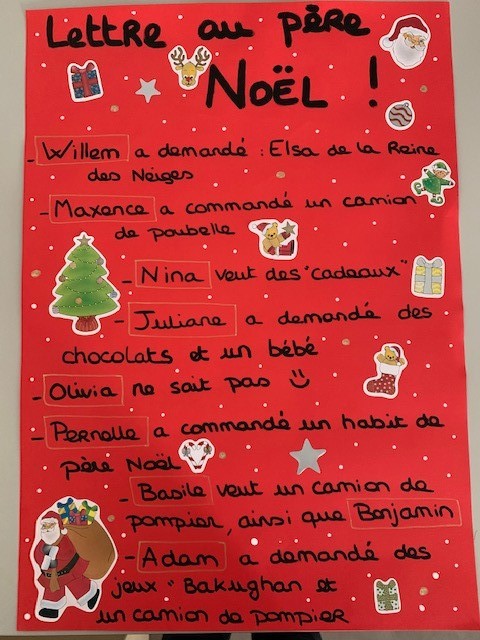 Lettre au père
Noël !
- Willem a demandé : Elsa de la Reine
des Neiges
- Maxence a commandé un camion
de poubelle
- Nina veut des "cadeaux"
- Juliane a demandé des
chocolats et un bébé
- Olivia ne sait pas
- Pernelle a commandé un habit de
père Noël
- Basile veut un camion de
pompier, ainsi que Benjamin
- Adam a demandé des
jeux "Bakughan et
un camion de pompier